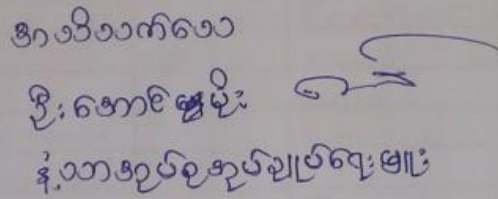 အသိသက်သေ
ဦးအောင်မွှေးမိုး
နံ့သာအုပ်စုအုပ်ချုပ်ရေးမှူး